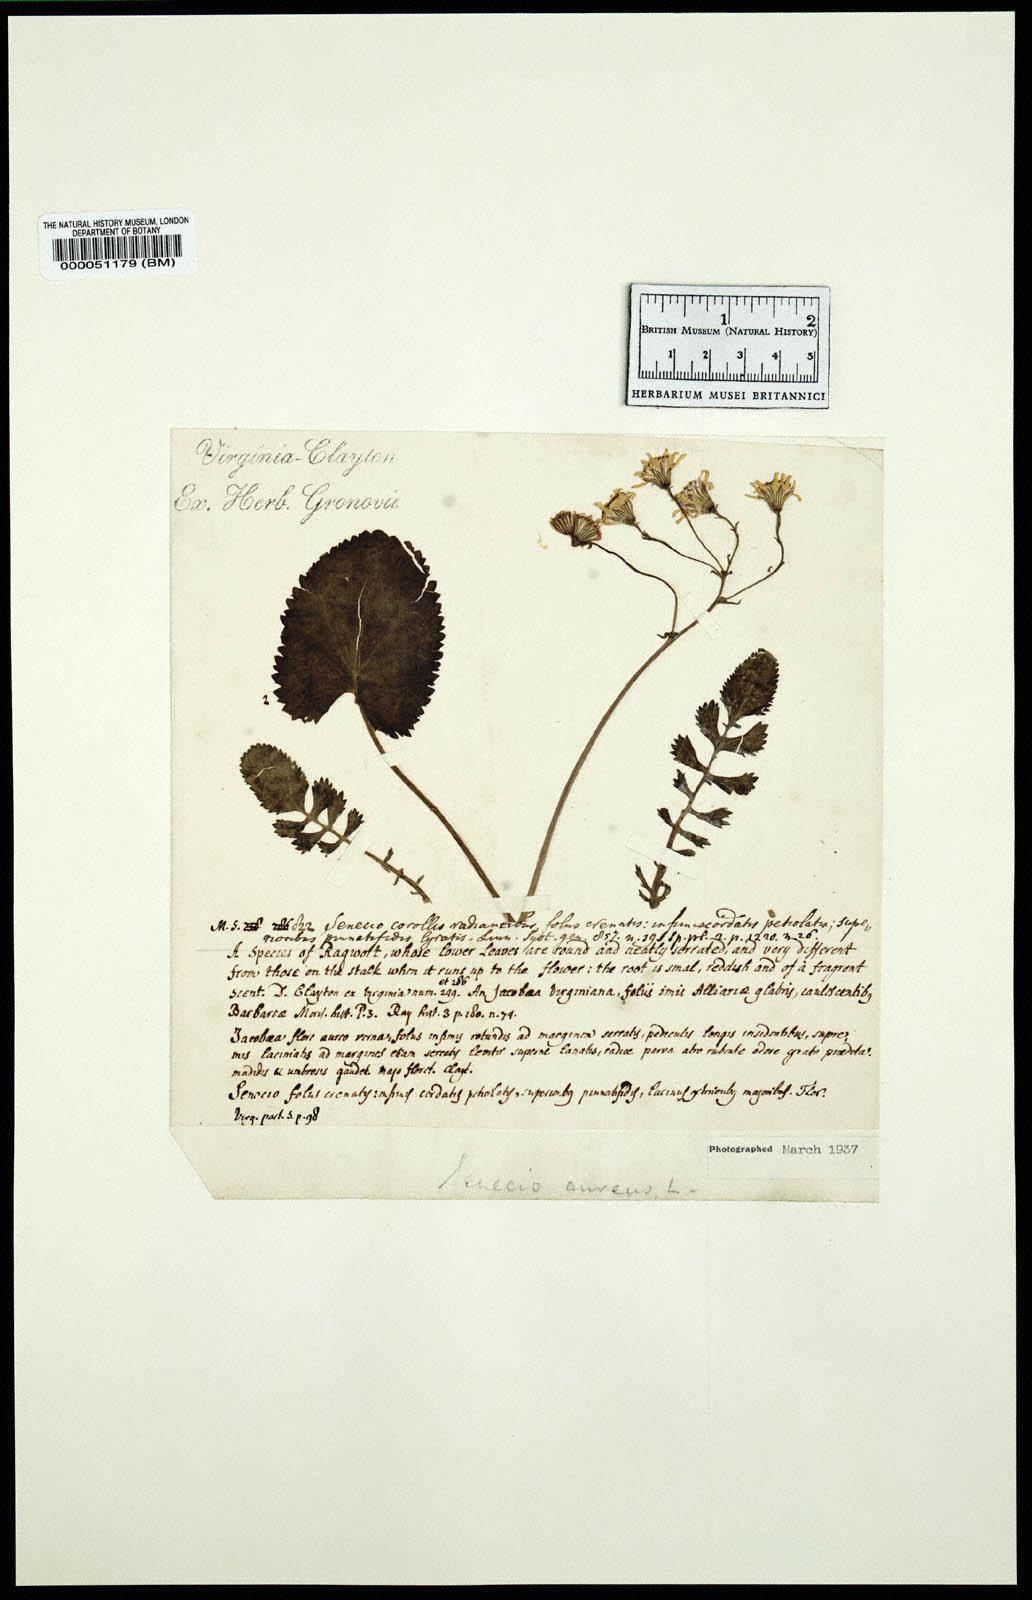 THE NATURAL HISTORY MUSEUM, LONDON
DEPARTMENT OF BOTANY
000051179 (BM)
1 2
BRITISH MUSEUM (NATURAL HISTORY)
1 2 3 4 5
HERBARIUM MUSEI BRITANNICI
Virginia-Clayton
Ex. Herb. Gronovii
2
M. S. 822 Senecio corollis radiantibus, foliis crenatis: infimis cordatis petiolatis; supe,,
rioribus pinnatifidis, lyratis. Linn. Syst. p. 1220. n. 26.
A Species of Ragwort, whose lower Leaves are round and neatly serrated, and very different
from those on the stalk when it runs up to the flower: the root is smal, reddish and of a fragrent
scent. D. Clayton ex Virginia num. 249. et 286 An Jacobæa Virginiana, foliis imis Alliariæ glabris, caulescentibꝫ
Barbareæ Moris. hist. P. 3. Ray hist. 3 p. 180. n. 74.
Jacobæa flore aureo verna, foliis infimis rotundis ad marginem serratis, pediculis longis insidentibus, supre,,
mis laciniatis ad margines etiam serratis leviter superne lanatis, radice parva atro rubente odore grato prædita.
madidis & umbrosis gaudet. Majo floret. Clayt.
Senecio foliis crenatis: infimis cordatis petiolatis, superioribꝫ pinnatifidis, lacinijs exterioribꝫ majoribus. Flor.
Virg. part. 2. p. 98
Photographed March 1937
Senecio aureus, L.